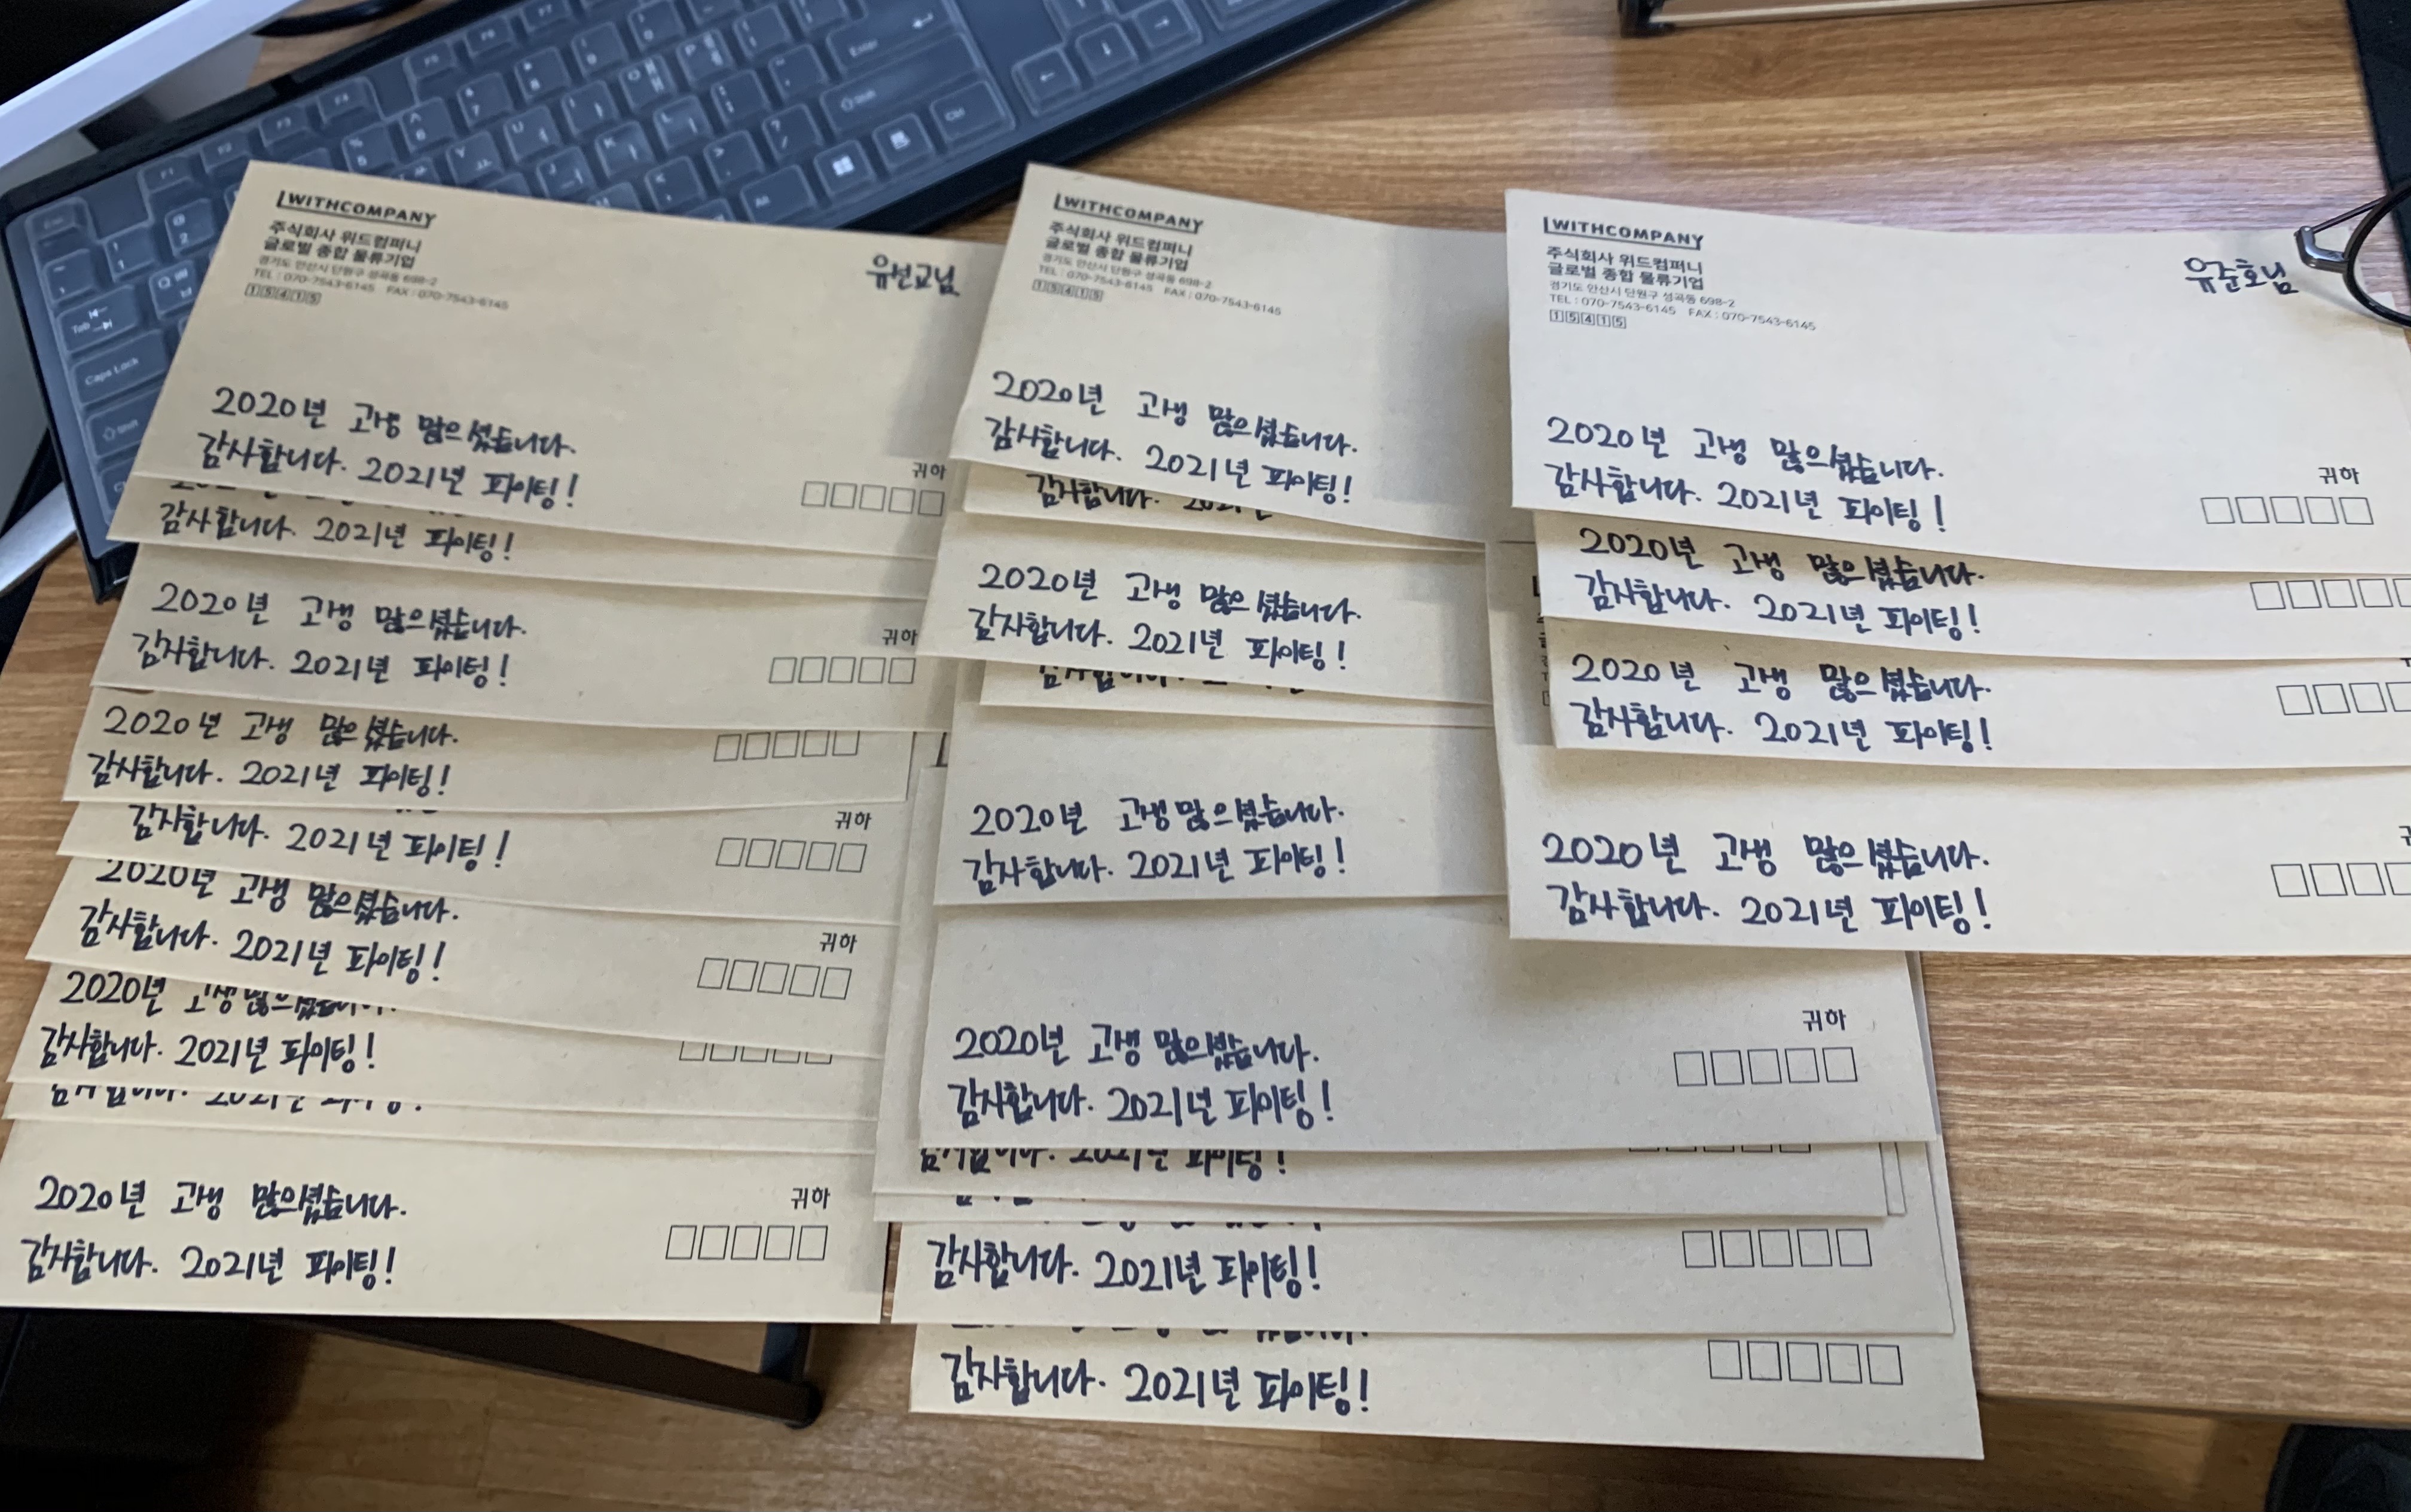 WITHCOMPANY
주식회사 위드컴퍼니
글로벌 종합 물류기업
경기도 안산시 단원구 성곡동 698-2
TEL : 070-7543-6145 FAX : 070-7543-6145
15415
유선교님
2020년 고생 많으셨습니다.
감사합니다. 2021년 파이팅!
귀하
감사합니다. 2021년 파이팅!
2020년 고생 많으셨습니다.
감사합니다. 2021년 파이팅!
귀하
2020년 고생 많으셨습니다.
감사합니다. 2021년 파이팅!
감사합니다. 2021년 파이팅!
귀하
2020년 고생 많으셨습니다.
감사합니다. 2021년 파이팅!
귀하
2020년 고생 많으셨습니다.
감사합니다. 2021년 파이팅!
감사합니다. 2021년 파이팅!
2020년 고생 많으셨습니다.
감사합니다. 2021년 파이팅!
귀하
WITHCOMPANY
주식회사 위드컴퍼니
글로벌 종합 물류기업
경기도 안산시 단원구 성곡동 698-2
TEL : 070-7543-6145 FAX : 070-7543-6145
15415
2020년 고생 많으셨습니다.
감사합니다. 2021년 파이팅!
감사합니다. 2021년
2020년 고생 많으셨습니다.
감사합니다. 2021년 파이팅!
감사합니다.
2020년 고생 많으셨습니다.
감사합니다. 2021년 파이팅!
2020년 고생 많으셨습니다.
감사합니다. 2021년 파이팅!
귀하
감사합니다. 2021년 파이팅!
감사합니다. 2021년 파이팅!
감사합니다. 2021년 파이팅!
WITHCOMPANY
주식회사 위드컴퍼니
글로벌 종합 물류기업
경기도 안산시 단원구 성곡동 698-2
TEL : 070-7543-6145 FAX : 070-7543-6145
15415
유준호님
2020년 고생 많으셨습니다.
감사합니다. 2021년 파이팅!
귀하
2020년 고생 많으셨습니다.
감사합니다. 2021년 파이팅!
2020년 고생 많으셨습니다.
감사합니다. 2021년 파이팅!
2020년 고생 많으셨습니다.
감사합니다. 2021년 파이팅!